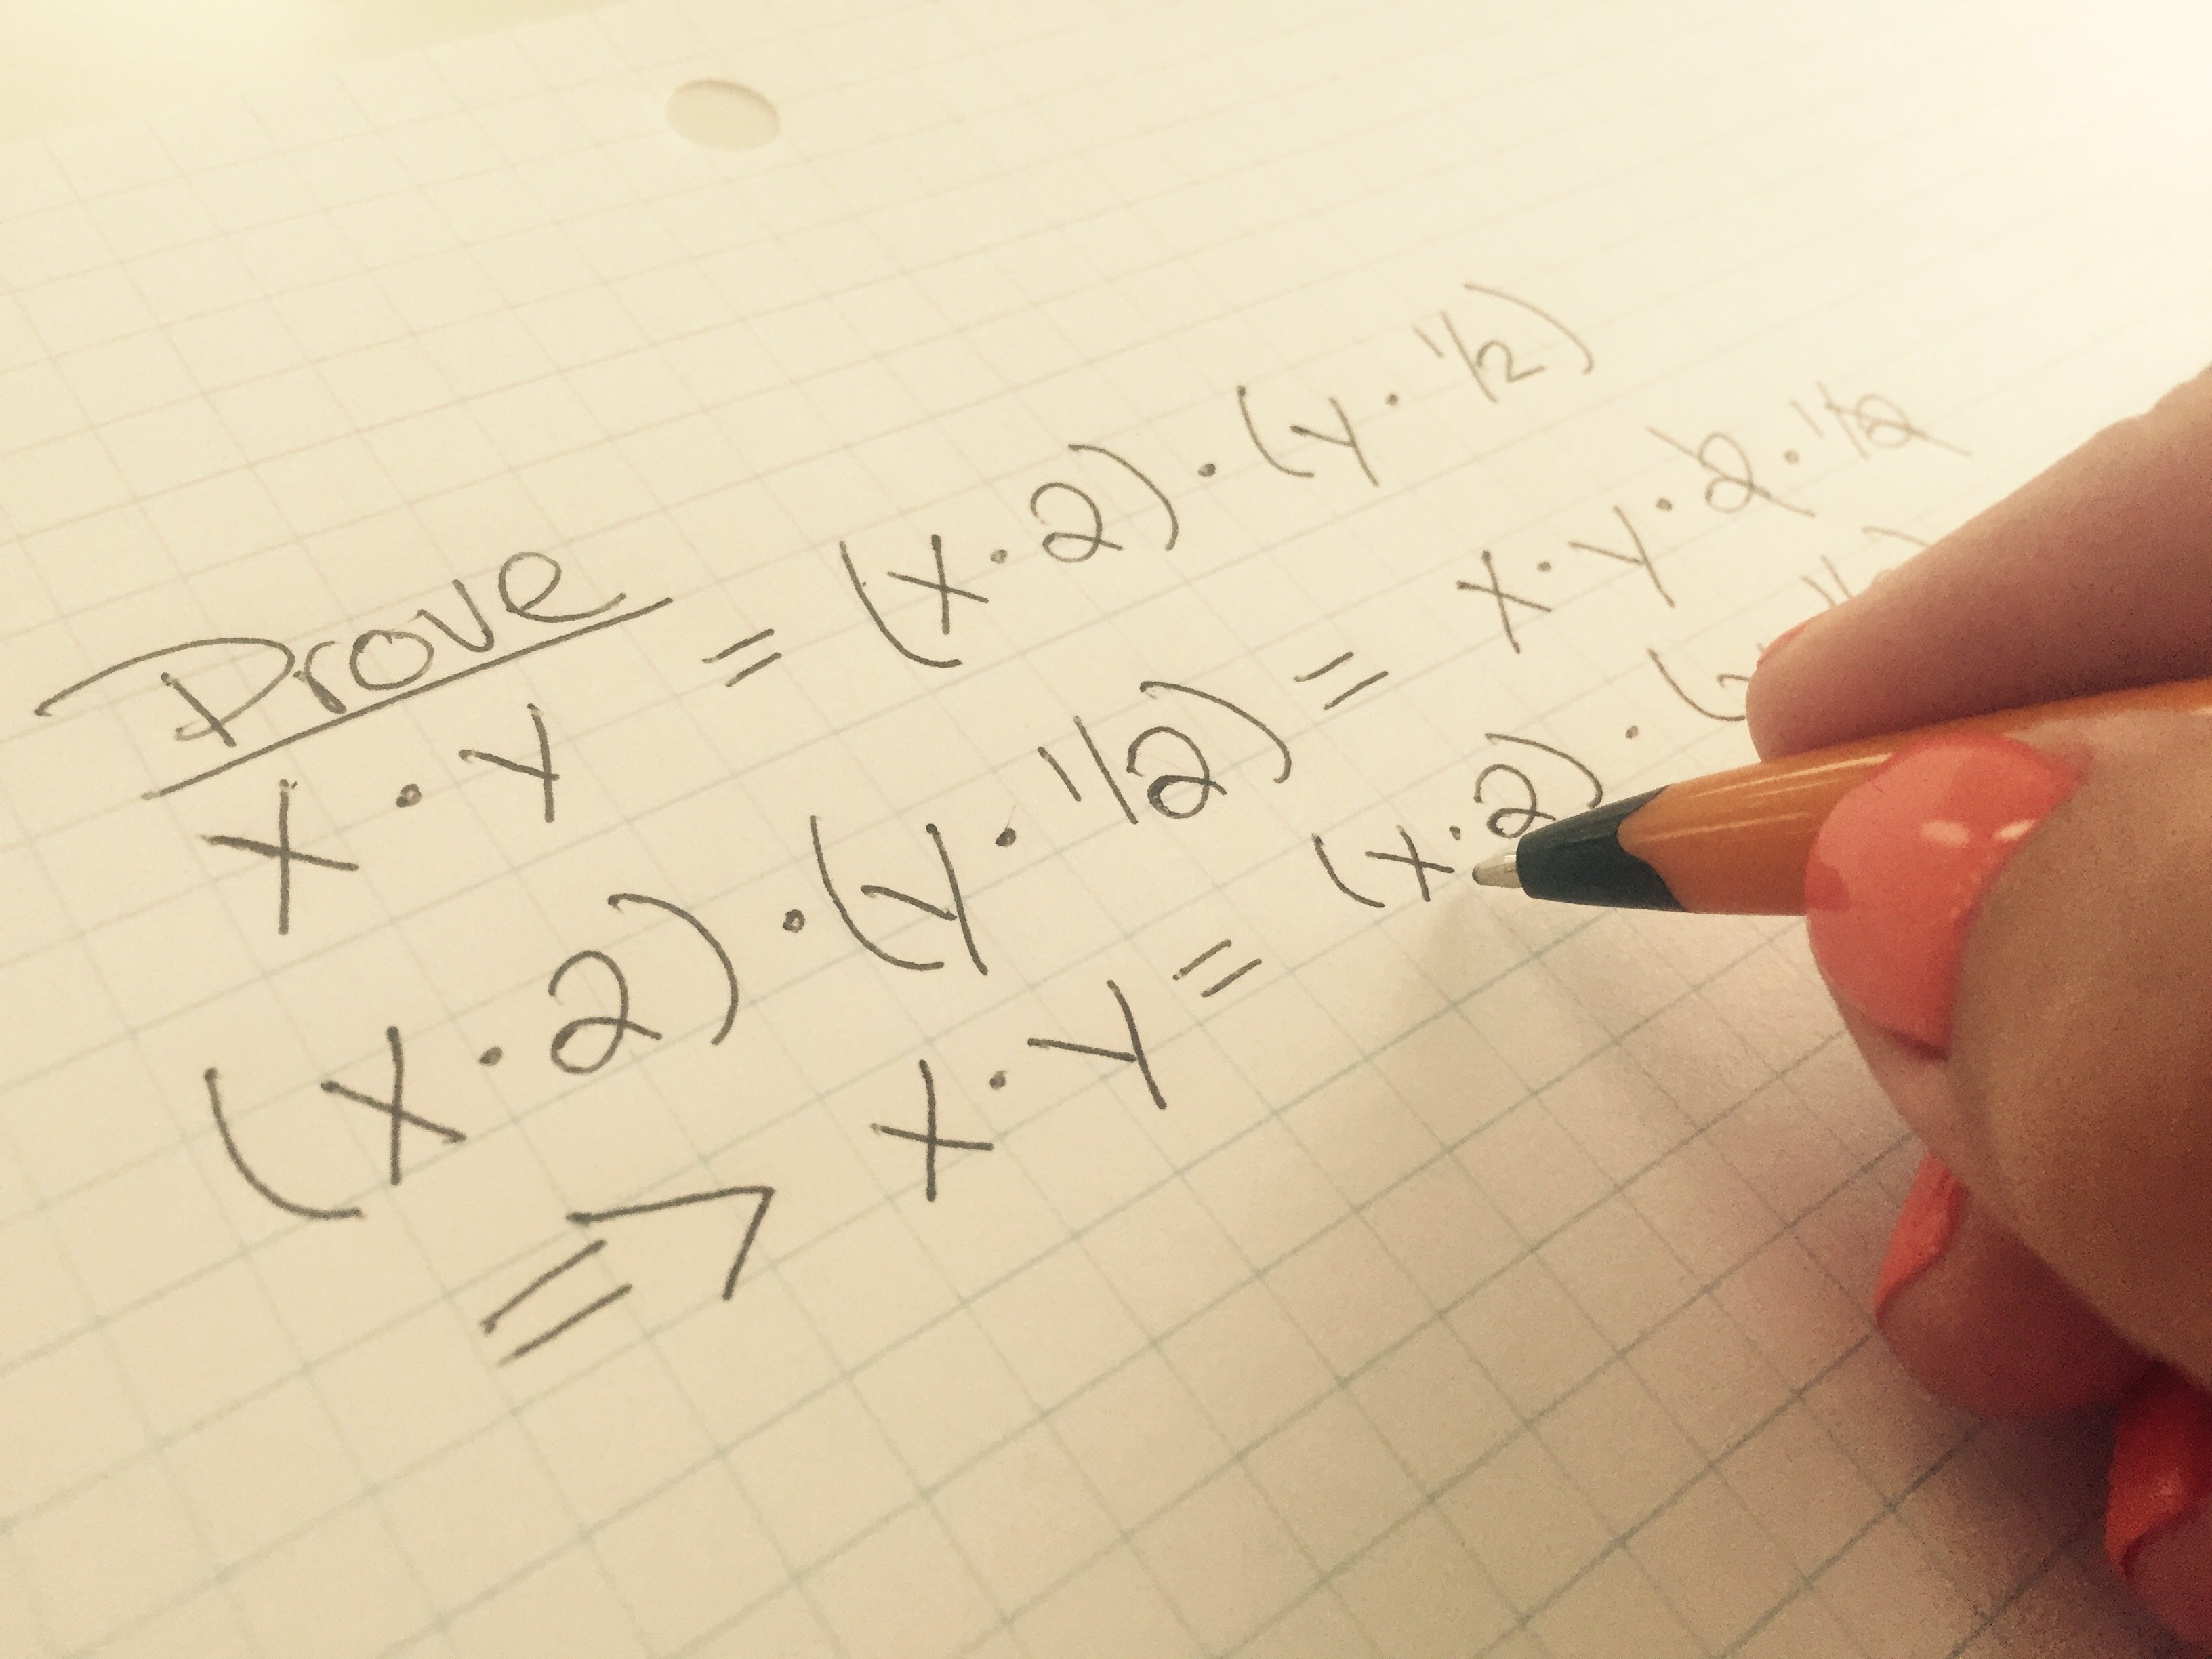 Prove
X · Y = (X · 2) · (Y · 1/2)
(X · 2) · (Y · 1/2) = X · Y · 2 · 1/2
=> X · Y = (X · 2) · (